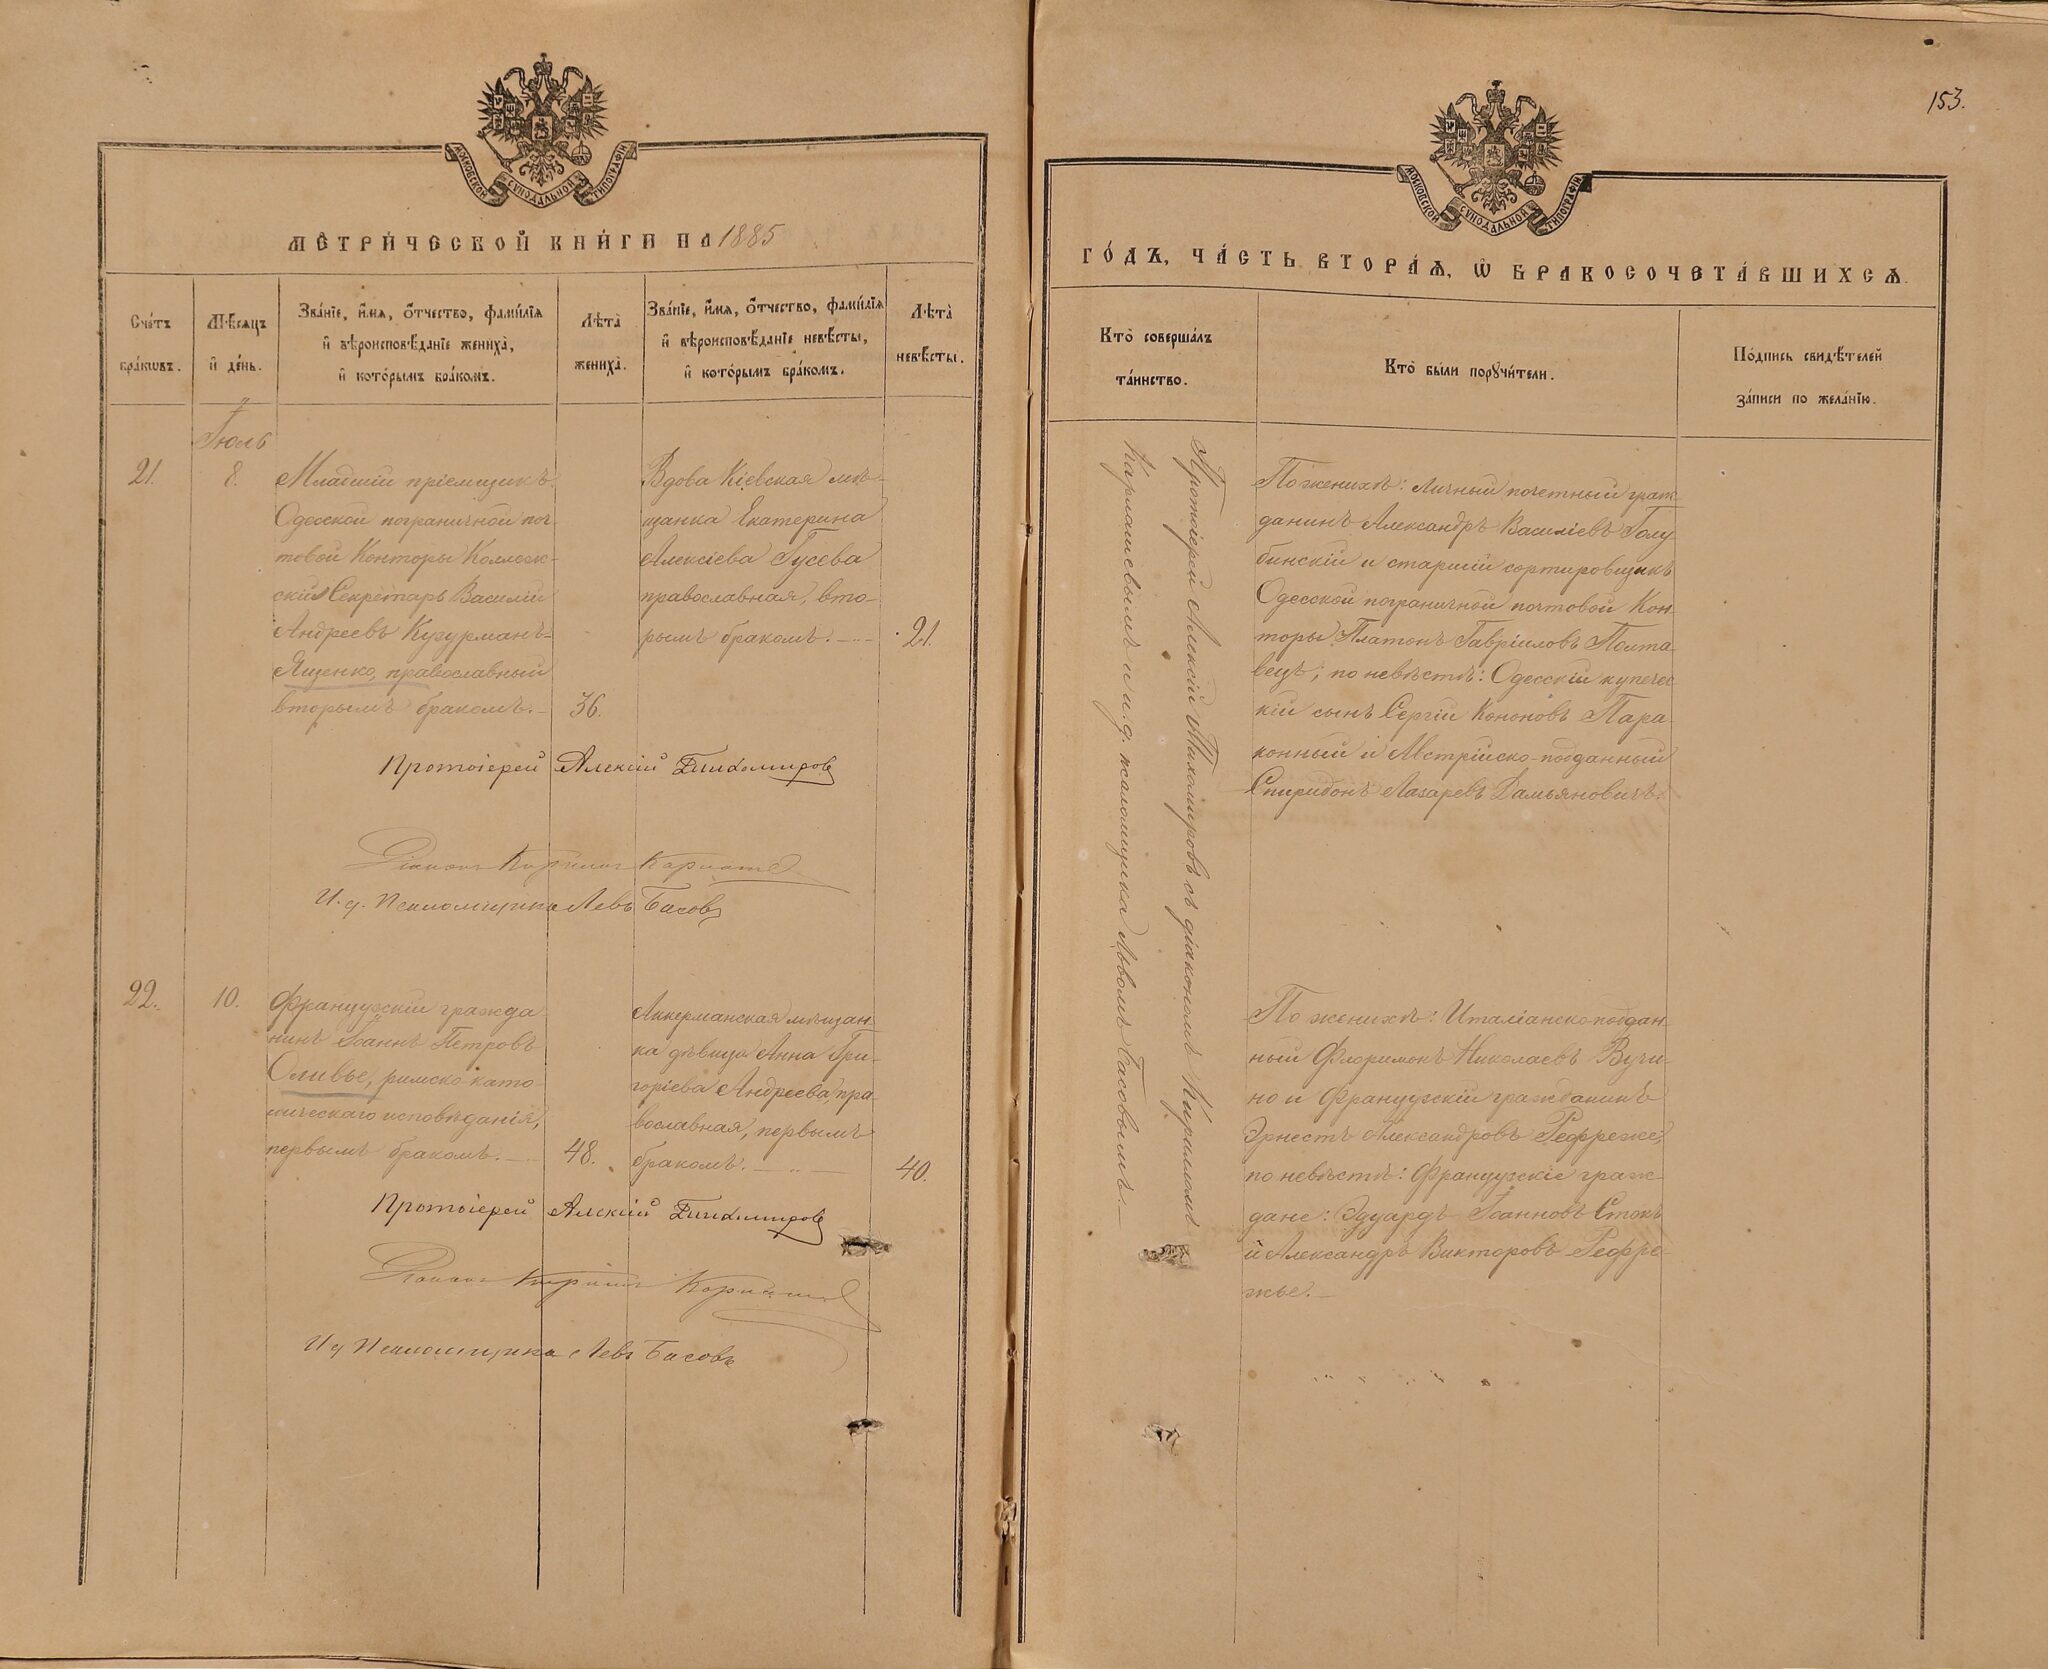 МОСКОВСКОЙ СѴНОДАЛЬНОЙ ТИПОГРАФІИ
МЕТРИ́ЧЕСКОЙ КНИ́ГИ НА 1885
Сче́тъ бра́кѡвъ.
Мѣ́сяцъ и҆ де́нь.
Зва́нїе, и҆́мѧ, ѻ҆́тчество, фами́лїѧ
и҆ вѣроисповѣ́данїе жениха̀,
и҆ кото́рымъ бра́комъ.
Лѣта̀ жениха̀.
Зва́нїе, и҆́мѧ, ѻ҆́тчество, фами́лїѧ
и҆ вѣроисповѣ́данїе невѣ́сты,
и҆ кото́рымъ бра́комъ.
Лѣта̀ невѣ́сты.
Іюль
21.
8.
Младшій пріемщикъ
Одесской пограничной поч-
товой Конторы Коллеж-
скій Секретарь Василій
Андреевъ Кугурманъ-
Ященко, православный
вторымъ бракомъ.
36.
Вдова Кіевская мѣ-
щанка Екатерина
Алексіева Гусева
православная, вто-
рымъ бракомъ.
21.
Протоіерей Алексій Тихомировъ
Діаконъ Кириллъ
И. д. Псаломщика Левъ Басовъ
22.
10.
Французскій гражда-
нинъ Іоаннъ Петровъ
Оливье, римско-като-
лическаго исповѣданія,
первымъ бракомъ.
48.
Аккерманская мѣщан-
ка дѣвица Анна Гри-
горіева Андреева, пра-
вославная, первымъ
бракомъ.
40.
Протоіерей Алексій Тихомировъ
Діаконъ Кириллъ
И д Псаломщика Левъ Басовъ
153.
МОСКОВСКОЙ СѴНОДАЛЬНОЙ ТИПОГРАФІИ
ГО́ДЪ, ЧА́СТЬ ВТОРА́Ѧ, Ѡ҆ БРАКОСОЧЕТА́ВШИХСѦ.
Кто̀ соверша́лъ
та́инство.
Кто̀ бы́ли порꙋчи́тели.
По́дпись свидѣ́телей
за́писи по жела́нїю.
Протоіерей Алексій Тихомировъ съ діакономъ Кирилломъ
и и. д. псаломщика Львомъ Басовымъ.
По женихѣ: личный почетный граж-
данинъ Александръ Василіевъ Голу-
бинскій и старшій сортировщикъ
Одесской пограничной почтовой Кон-
торы Платонъ Гавріиловъ Полта-
вецъ; по невѣстѣ: Одесскій купечес-
кій сынъ Сергій Кононовъ Пара-
конный и Австрійско-подданный
Спиридонъ Лазаревъ Дамьяновичъ.
По женихѣ: Италіанско-поддан-
ный Флоримонъ Николаевъ Вучи-
но и Французскій гражданинъ
Эрнестъ Александровъ Рефреже,
по невѣстѣ: Французскіе граж-
дане: Эдуардъ Іоанновъ Стокъ
и Александръ Викторовъ Рефре-
жье.